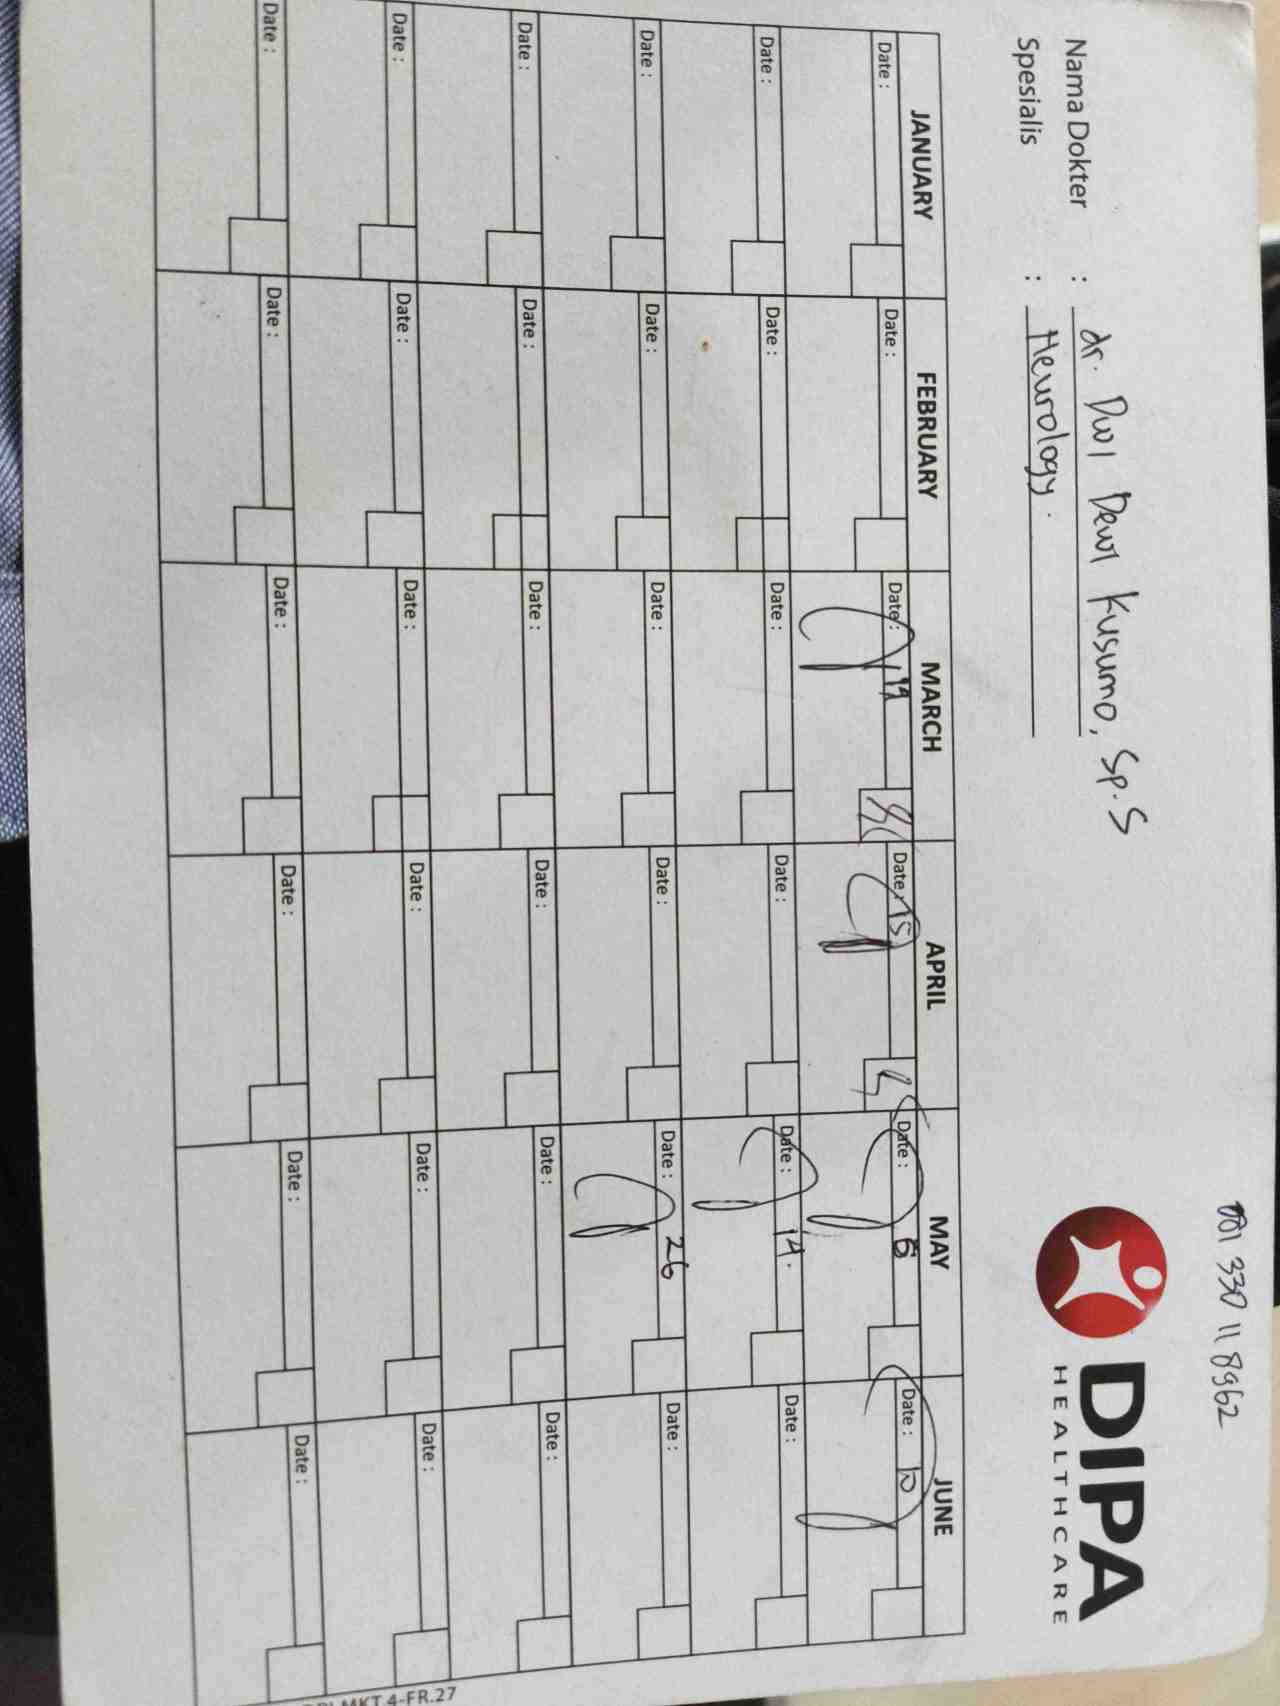 081 330 11 8962
DIPA
HEALTHCARE
Nama Dokter : dr. Dwi Dewi Kusumo, Sp.S
Spesialis : Neurology.
JANUARY FEBRUARY MARCH APRIL MAY JUNE
Date : Date : Date : 19 Date : 15 Date : 6 Date : 10
Date : Date : Date : Date : Date : 14. Date :
Date : Date : Date : Date : Date : 26 Date :
Date : Date : Date : Date : Date : Date :
Date : Date : Date : Date : Date : Date :
Date : Date : Date : Date : Date : Date :
MKT.4-FR.27